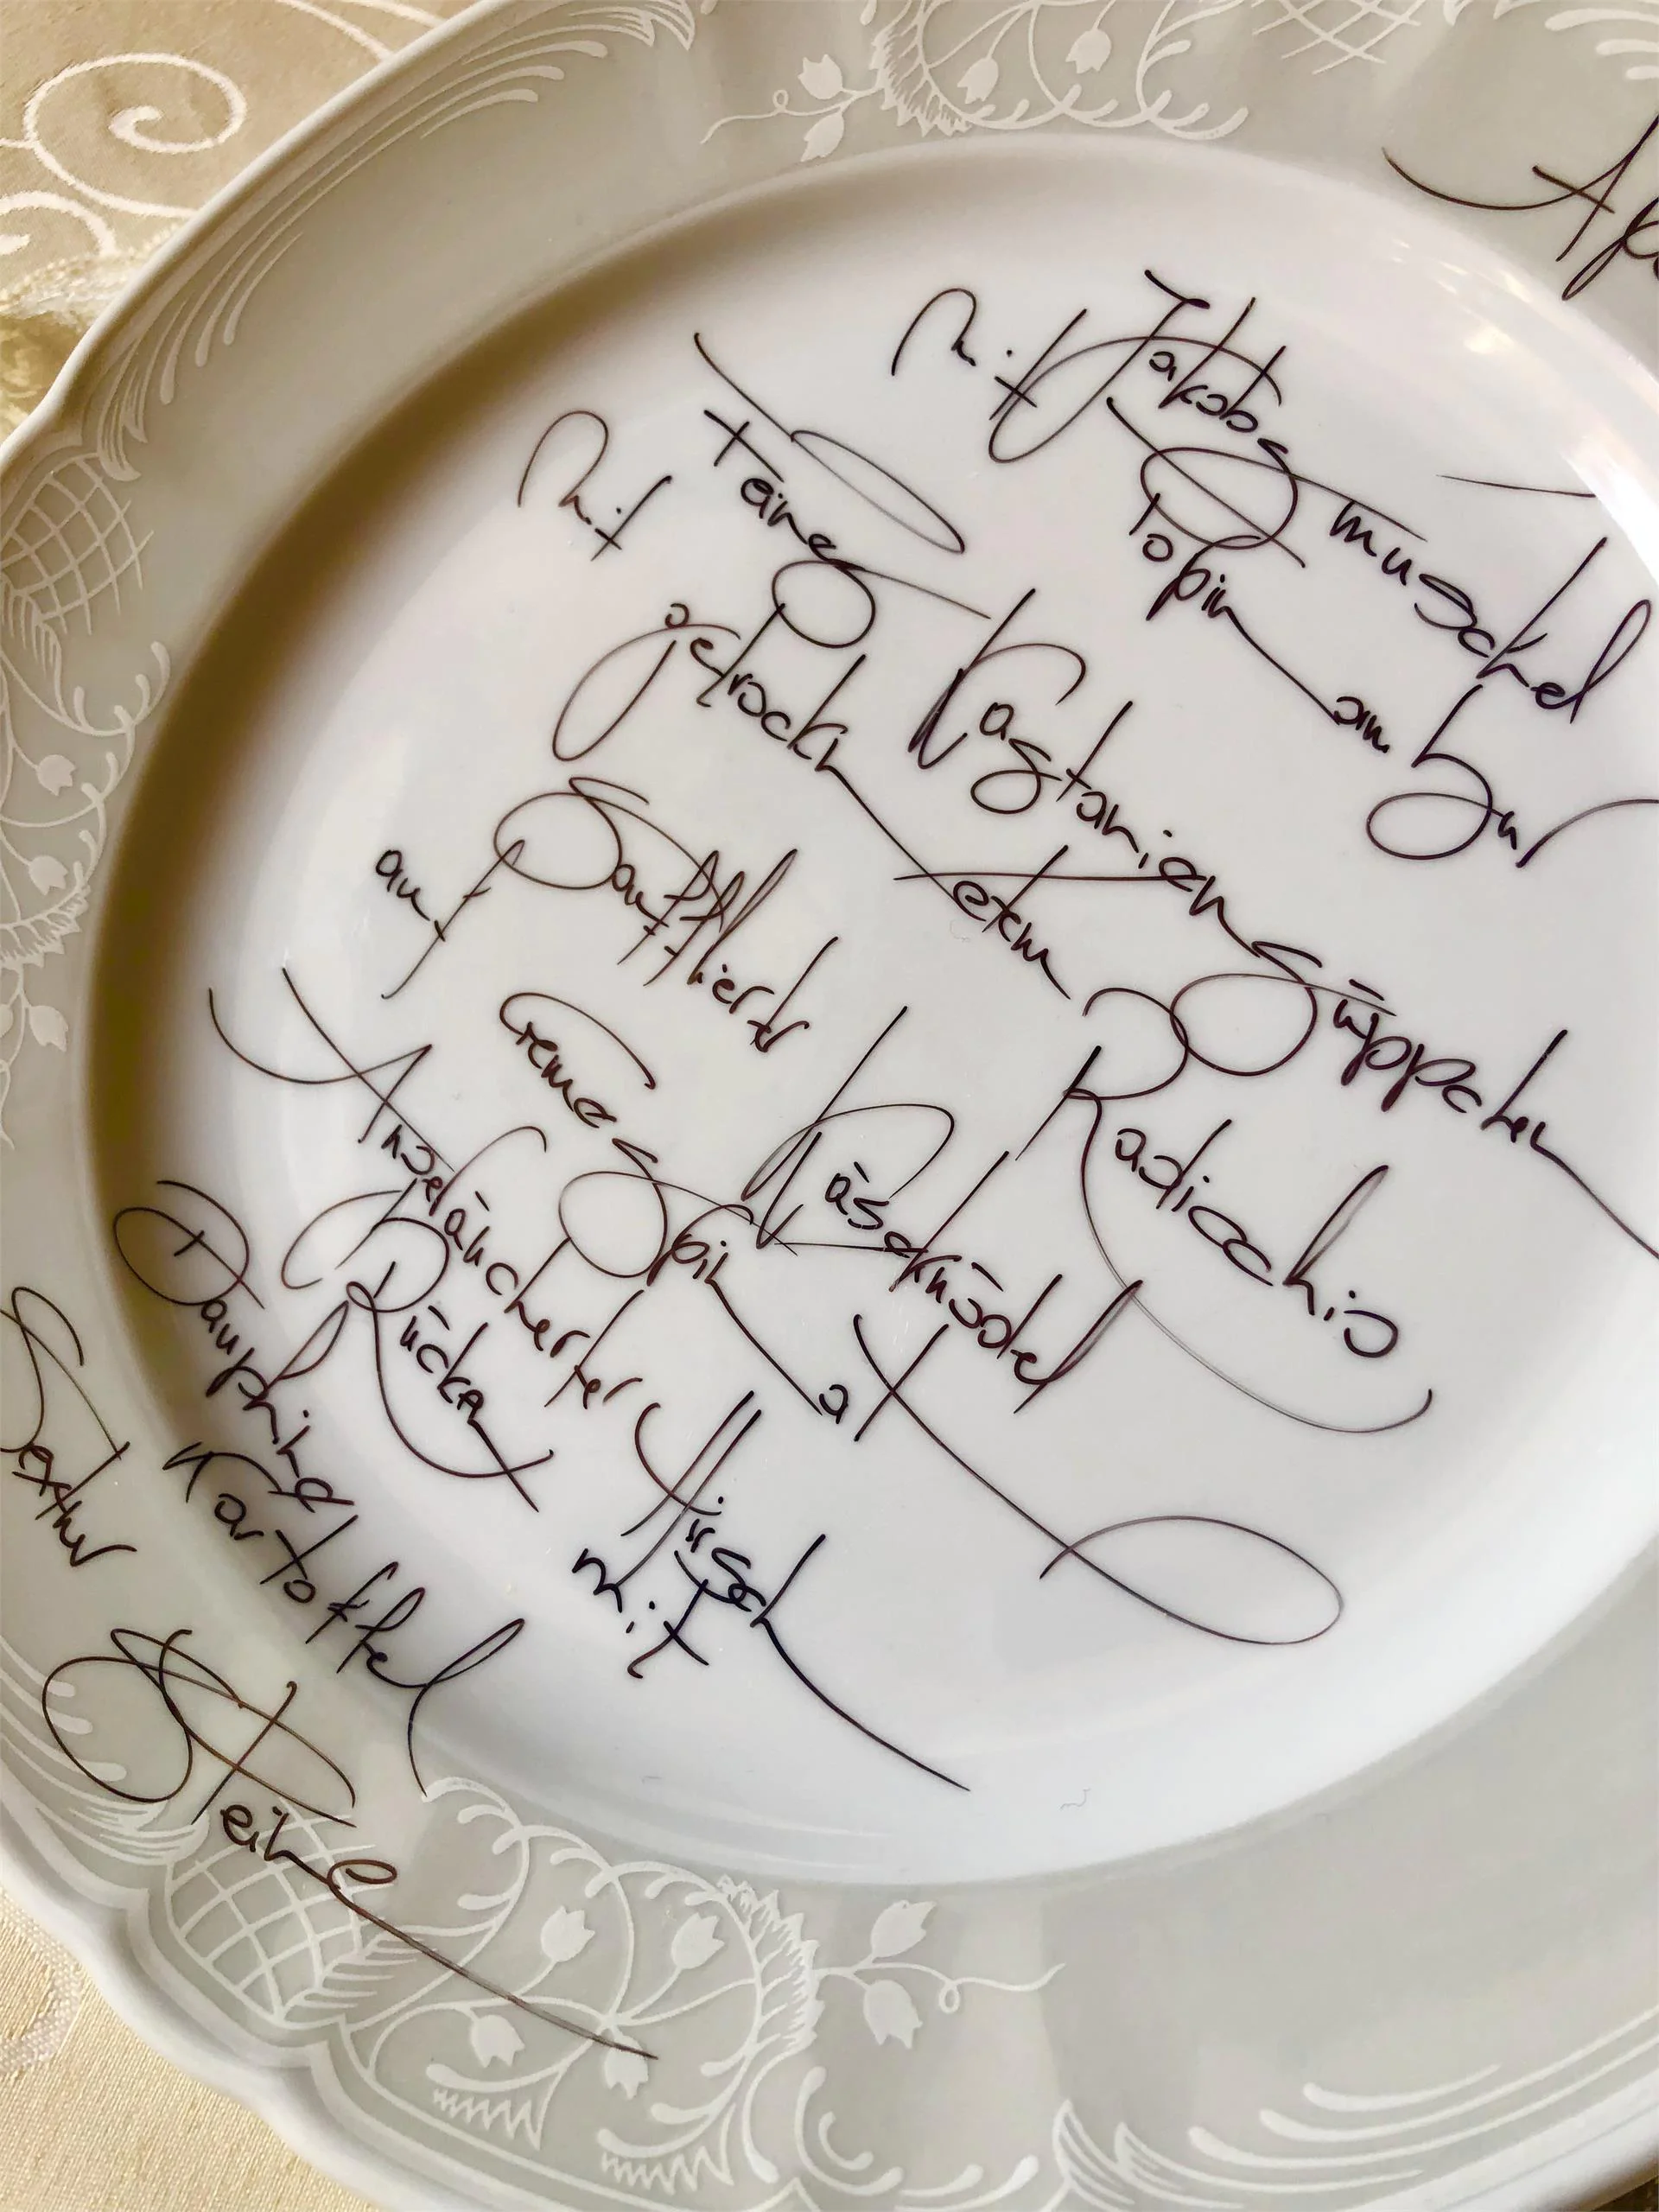 Ap
Mit Jakobsmuschel
Topinambur
Feines Kastaniensüppchen
Mit getrocknetem Radicchio
Soufflierter Käseknödel
auf Cremespinat
Angeräucherter Hirsch
Rücken mit
Dauphine Kartoffel
Sextner Steine